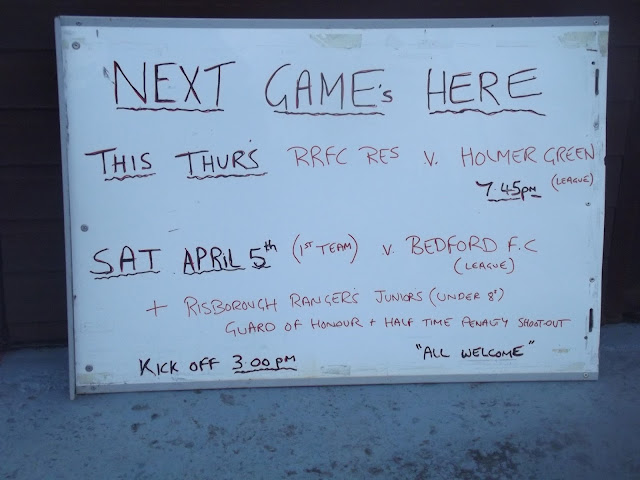 NEXT GAME's HERE
THIS THUR'S RRFC RES V. HOLMER GREEN
7.45pm (LEAGUE)
SAT APRIL 5th (1ST TEAM) V. BEDFORD F.C
(LEAGUE)
+ RISBOROUGH RANGER'S JUNIORS (UNDER 8')
GUARD OF HONOUR + HALF TIME PENALTY SHOOT-OUT
KICK OFF 3.00pm "ALL WELCOME"